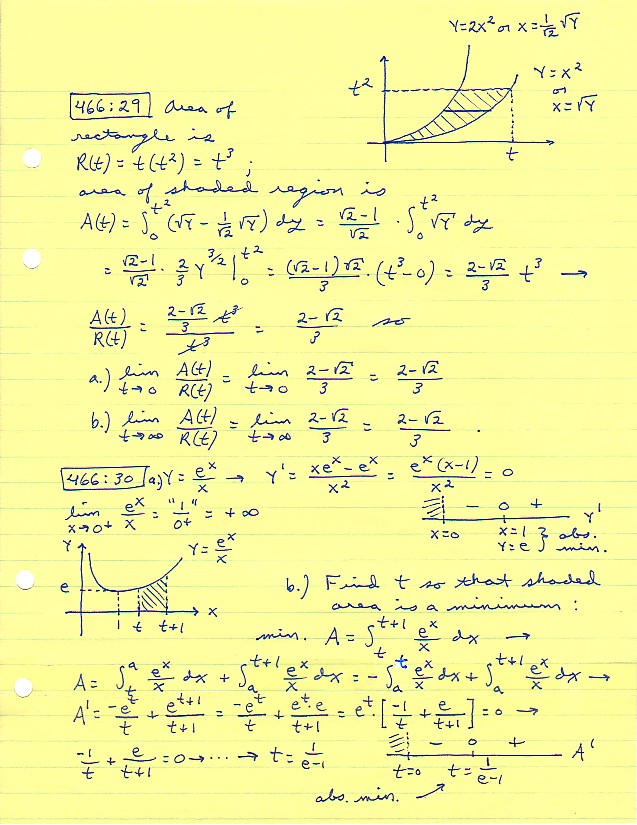 Y=2x² or x=1/√2 √Y
t²
Y=x²
or
x=√Y
t
466:29 Area of
rectangle is
R(t) = t(t²) = t³ ;
area of shaded region is
A(t) = ∫₀^t² (√Y − 1/√2 √Y) dy = (√2−1)/√2 · ∫₀^t² √Y dy
= (√2−1)/√2 · 2/3 Y^3/2 |₀^t² = (√2−1)√2/3 · (t³−0) = (2−√2)/3 t³ →
A(t)/R(t) = ((2−√2)/3 t³)/t³ = (2−√2)/3 so
a.) lim t→0 A(t)/R(t) = lim t→0 (2−√2)/3 = (2−√2)/3
b.) lim t→∞ A(t)/R(t) = lim t→∞ (2−√2)/3 = (2−√2)/3 .
466:30 a.) Y = e^x/x → Y' = (xe^x − e^x)/x² = e^x(x−1)/x² = 0
lim x→0+ e^x/x = "1"/0+ = +∞
− 0 + Y'
x=0 x=1 Y=e } abs. min.
Y
Y = e^x/x
e
1 t t+1 x
b.) Find t so that shaded
area is a minimum :
min. A = ∫_t^t+1 e^x/x dx →
A = ∫_t^a e^x/x dx + ∫_a^t+1 e^x/x dx = −∫_a^t e^x/x dx + ∫_a^t+1 e^x/x dx →
A' = −e^t/t + e^t+1/(t+1) = −e^t/t + e^t·e/(t+1) = e^t · [−1/t + e/(t+1)] = 0 →
−1/t + e/(t+1) = 0 → ··· → t = 1/(e−1)
− 0 + A'
t=0 t = 1/(e−1)
abs. min.